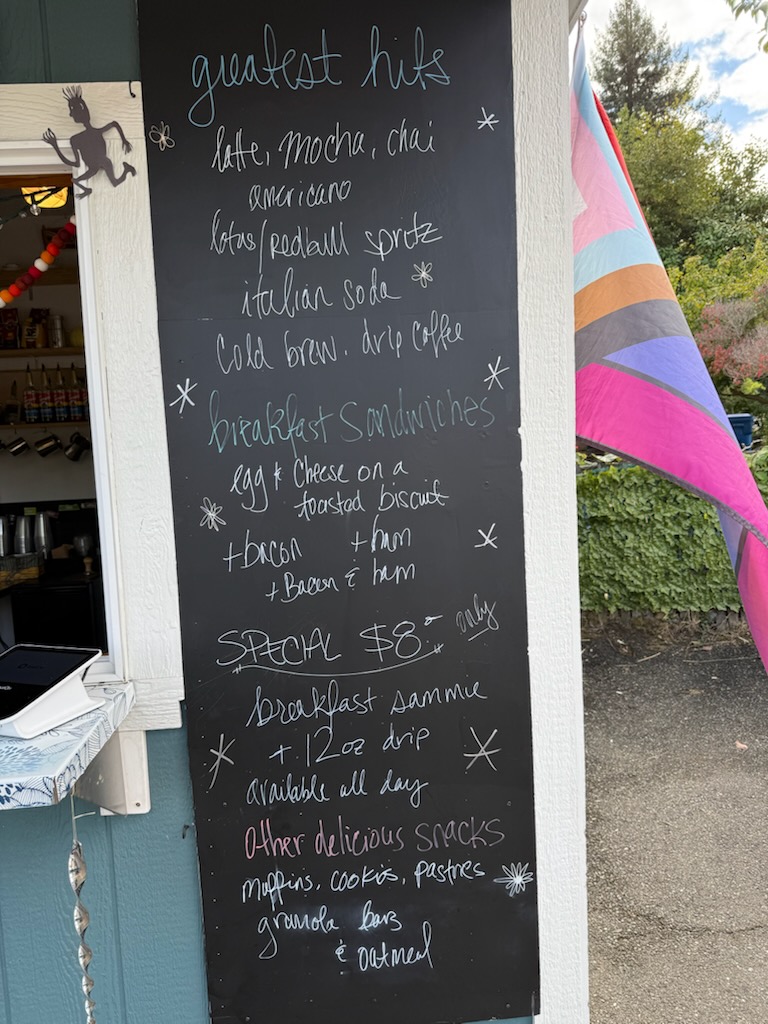 greatest hits
latte, mocha, chai
americano
lotus/redbull spritz
italian soda
cold brew. drip coffee
breakfast sandwiches
egg & cheese on a
toasted biscuit
+bacon +ham
+Bacon & ham
SPECIAL $8- only
breakfast sammie
+ 12oz drip
available all day
Other delicious snacks
muffins, cookies, pastries
granola bars
& oatmeal